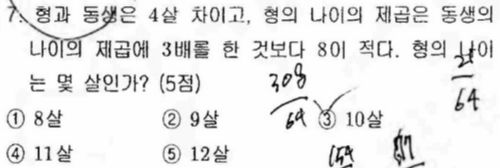 7. 형과 동생은 4살 차이고, 형의 나이의 제곱은 동생의
나이의 제곱에 3배를 한 것보다 8이 적다. 형의 나이
는 몇 살인가? (5점)
308
64
64
① 8살 ② 9살 ③ 10살
④ 11살 ⑤ 12살